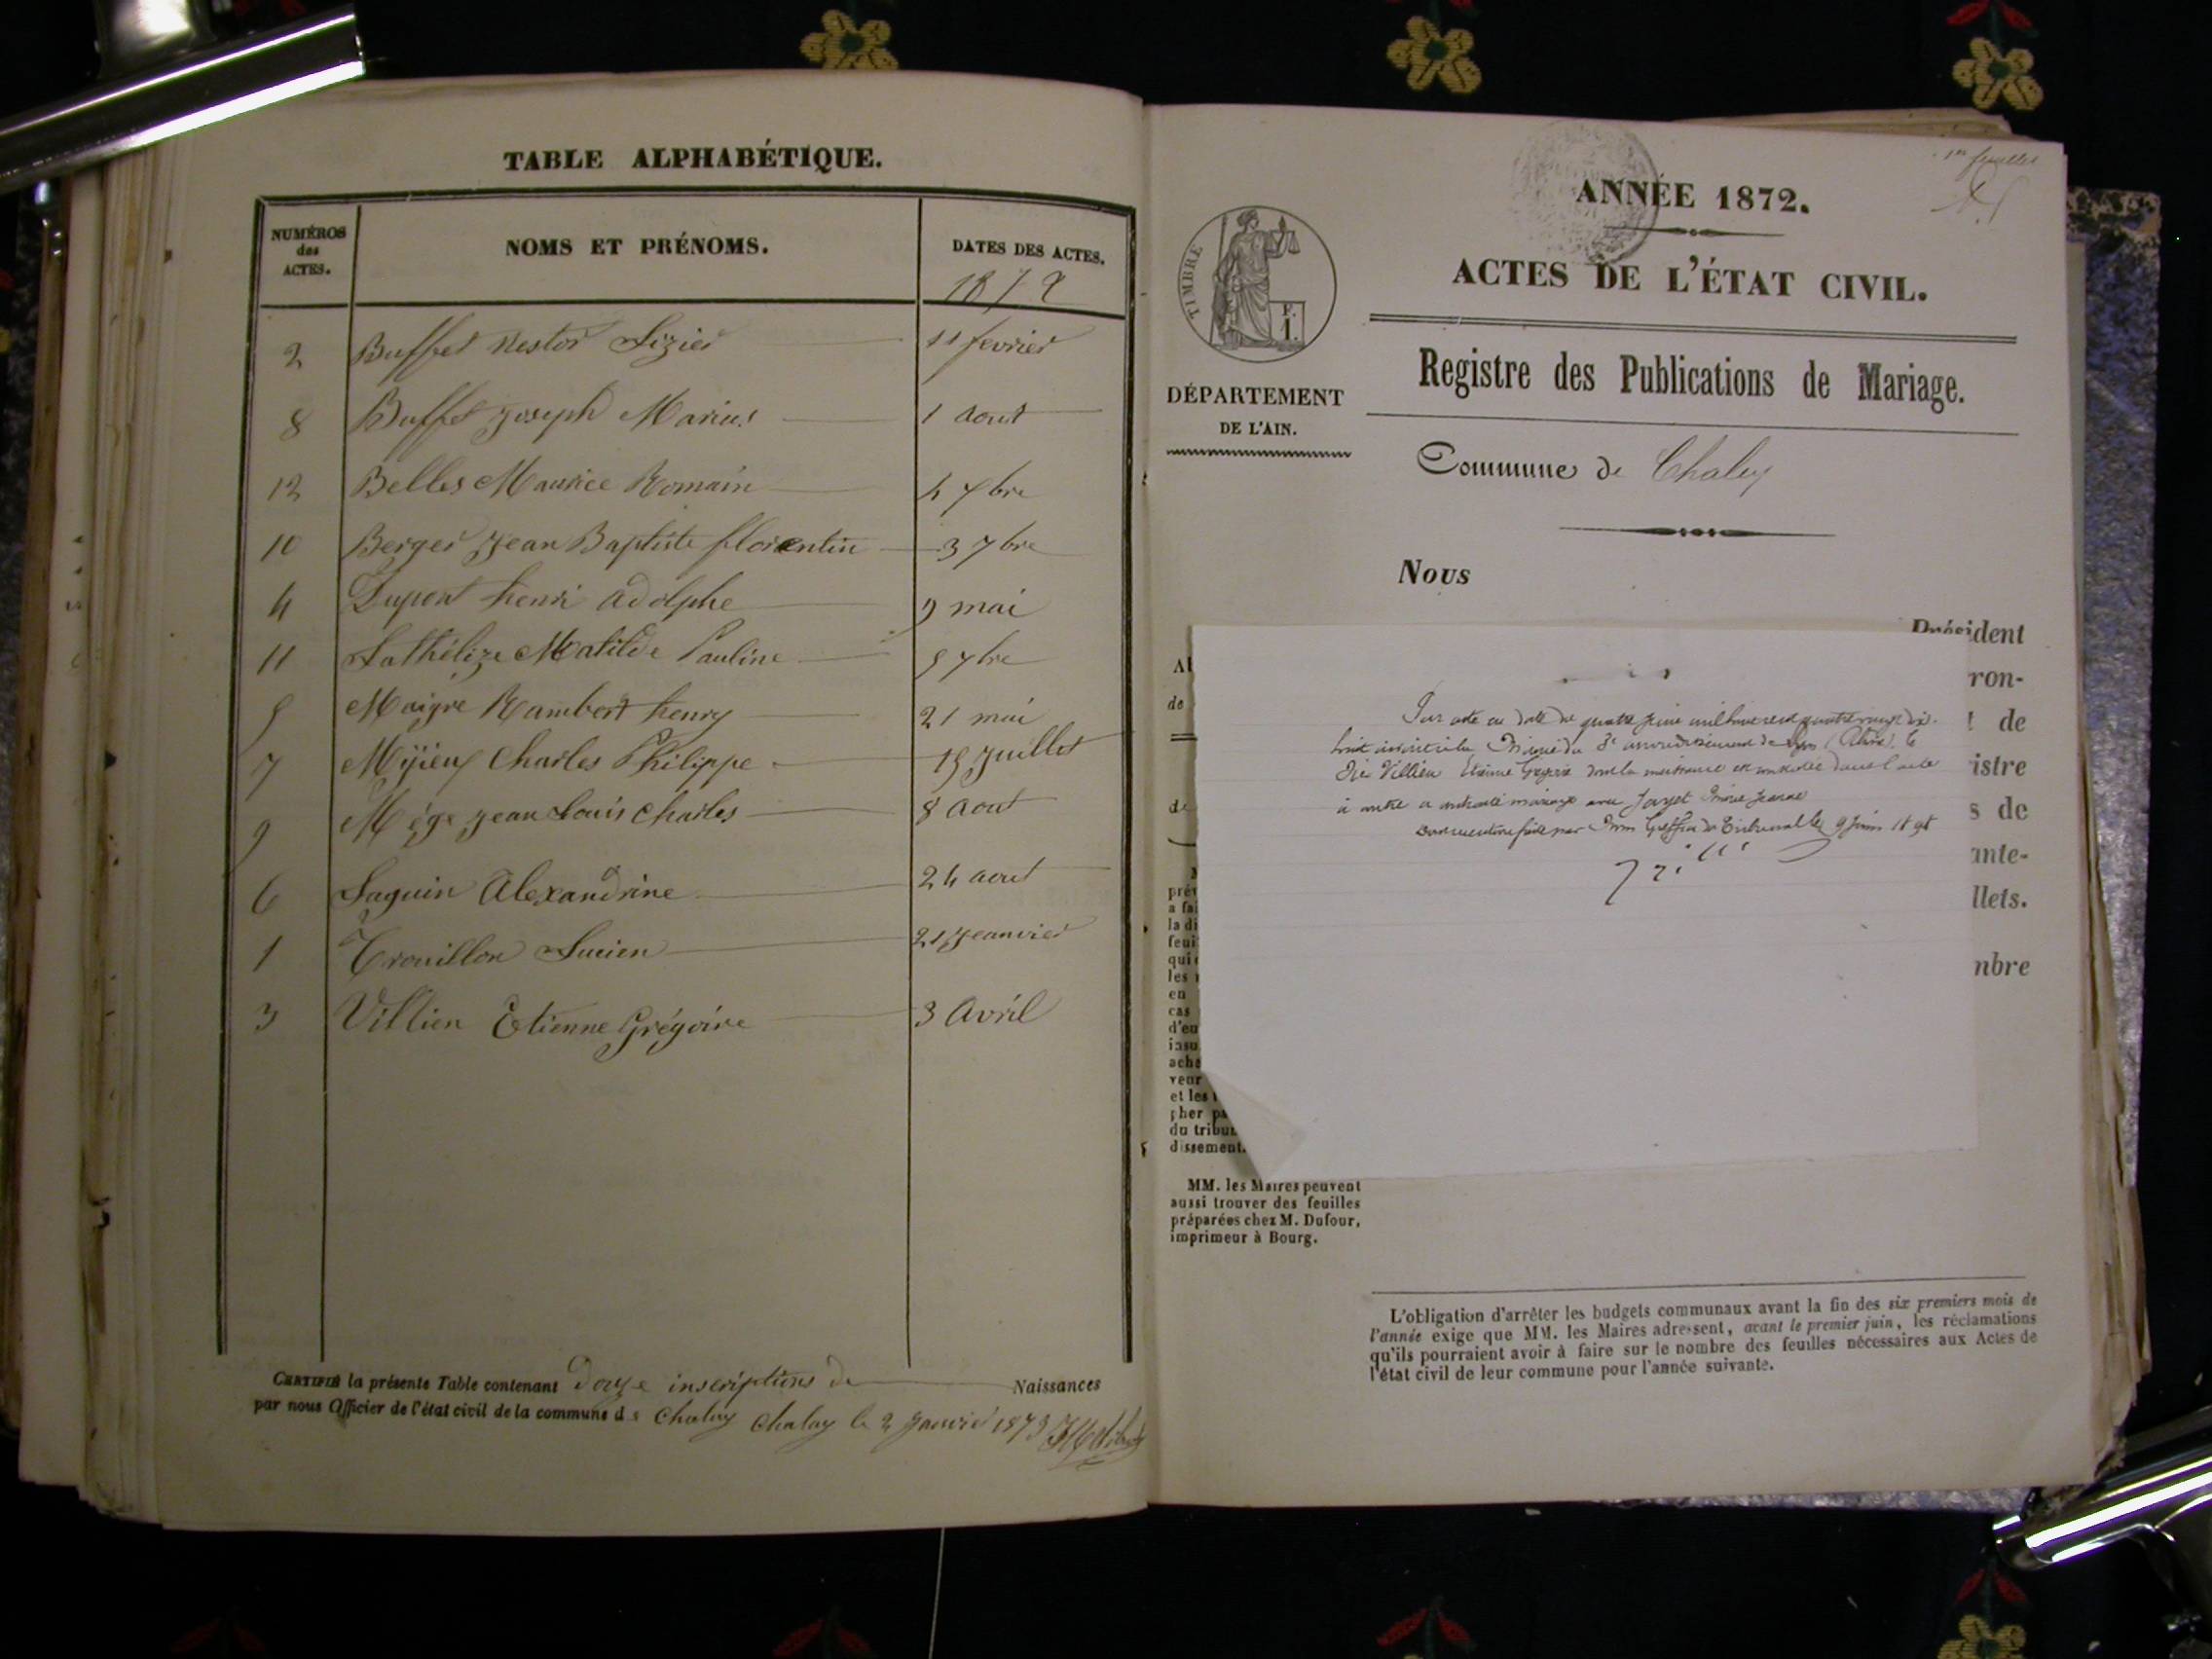 TABLE ALPHABÉTIQUE.
NUMÉROS des ACTES. NOMS ET PRÉNOMS. DATES DES ACTES.
1872
2 Buffet Nestor Lizier 11 fevrier
8 Buffet Joseph Marius 1 aout
12 Belles Maurice Romain 4 7bre
10 Berger Jean Baptiste florentin 3 7bre
4 Dupont henri adolphe 9 mai
11 Lathélize Matilde Pauline 5 7bre
5 Maigre Rambert henry 21 mai
7 Charles Philippe 15 Juillet
9 Mége Jean Louis Charles 8 Aout
6 Saguin Alexandrine 24 aout
1 Trouillon Lucien 21 Jeanvier
3 Villien Etienne Grégoire 3 Avril
CERTIFIÉ la présente Table contenant douze inscriptions de Naissances
par nous Officier de l'état civil de la commune de Chaley Chaley le 2 Janvier 1873
1er feuillet
ANNÉE 1872.
ACTES DE L'ÉTAT CIVIL.
TIMBRE
F.
1.
Registre des Publications de Mariage.
DÉPARTEMENT
DE L'AIN.
Commune de Chaley
Nous
Président
ron-
de
istre
s de
ante-
llets.
nbre
Par acte en date du quatre juin mil huit cent quatre vingt dix
huit inscrit à la Mairie du 3e arrondissement de Lyon (Rhône), le
dit Villien Etienne Grégoire dont la naissance est constatée dans l'acte
ci contre a contracté mariage avec Jayet Marie Jeanne
par Greffier du Tribunal le 9 Juin 1898
Al
de
de
prév
a fai
la di
feui
qui
les
en
cas
d'eu
insu
ache
veur
et les
pher pa
du tribun
dissement.
MM. les Maires peuvent
aussi trouver des feuilles
préparées chez M. Dufour,
imprimeur à Bourg.
L'obligation d'arrêter les budgets communaux avant la fin des six premiers mois de
l'année exige que MM. les Maires adressent, avant le premier juin, les réclamations
qu'ils pourraient avoir à faire sur le nombre des feuilles nécessaires aux Actes de
l'état civil de leur commune pour l'année suivante.